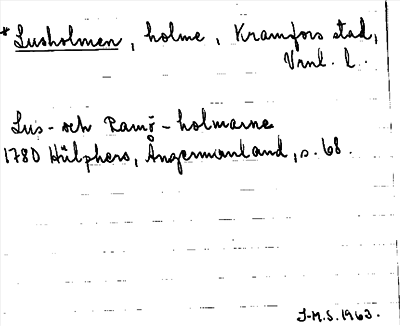 * Lusholmen, holme, Kramfors stad,
Vrml. l.
Lus- och Ramö-holmarne
1780 Hülphers, Ångermanland, s. 68.
J-M.S. 1963.